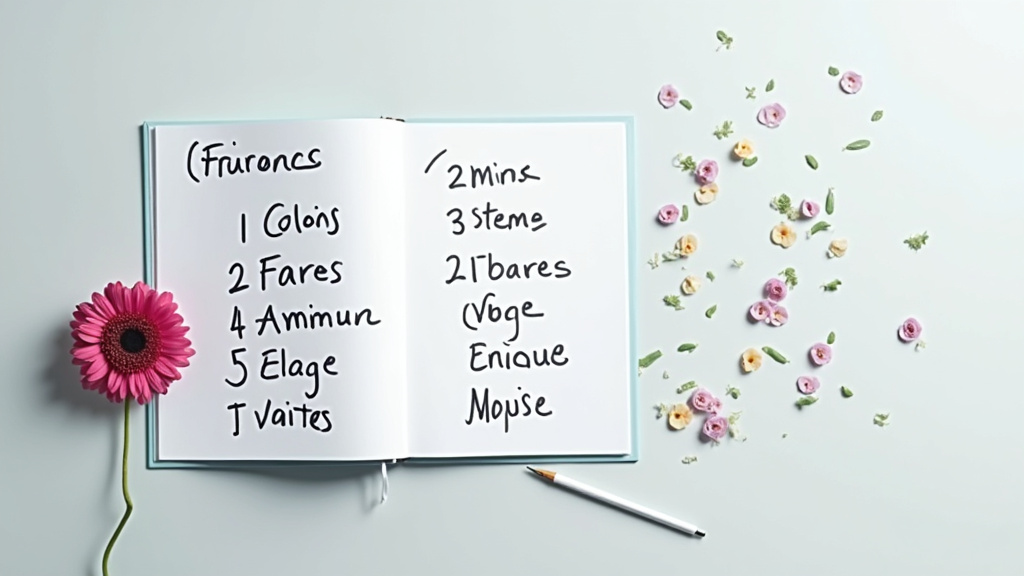 (Frironcs
1 Coloins
2 Fares
4 Amimun
5 Elage
T vaites
2 mins
3 stems
2 Tbares
(Voge
Enioue
Mopise